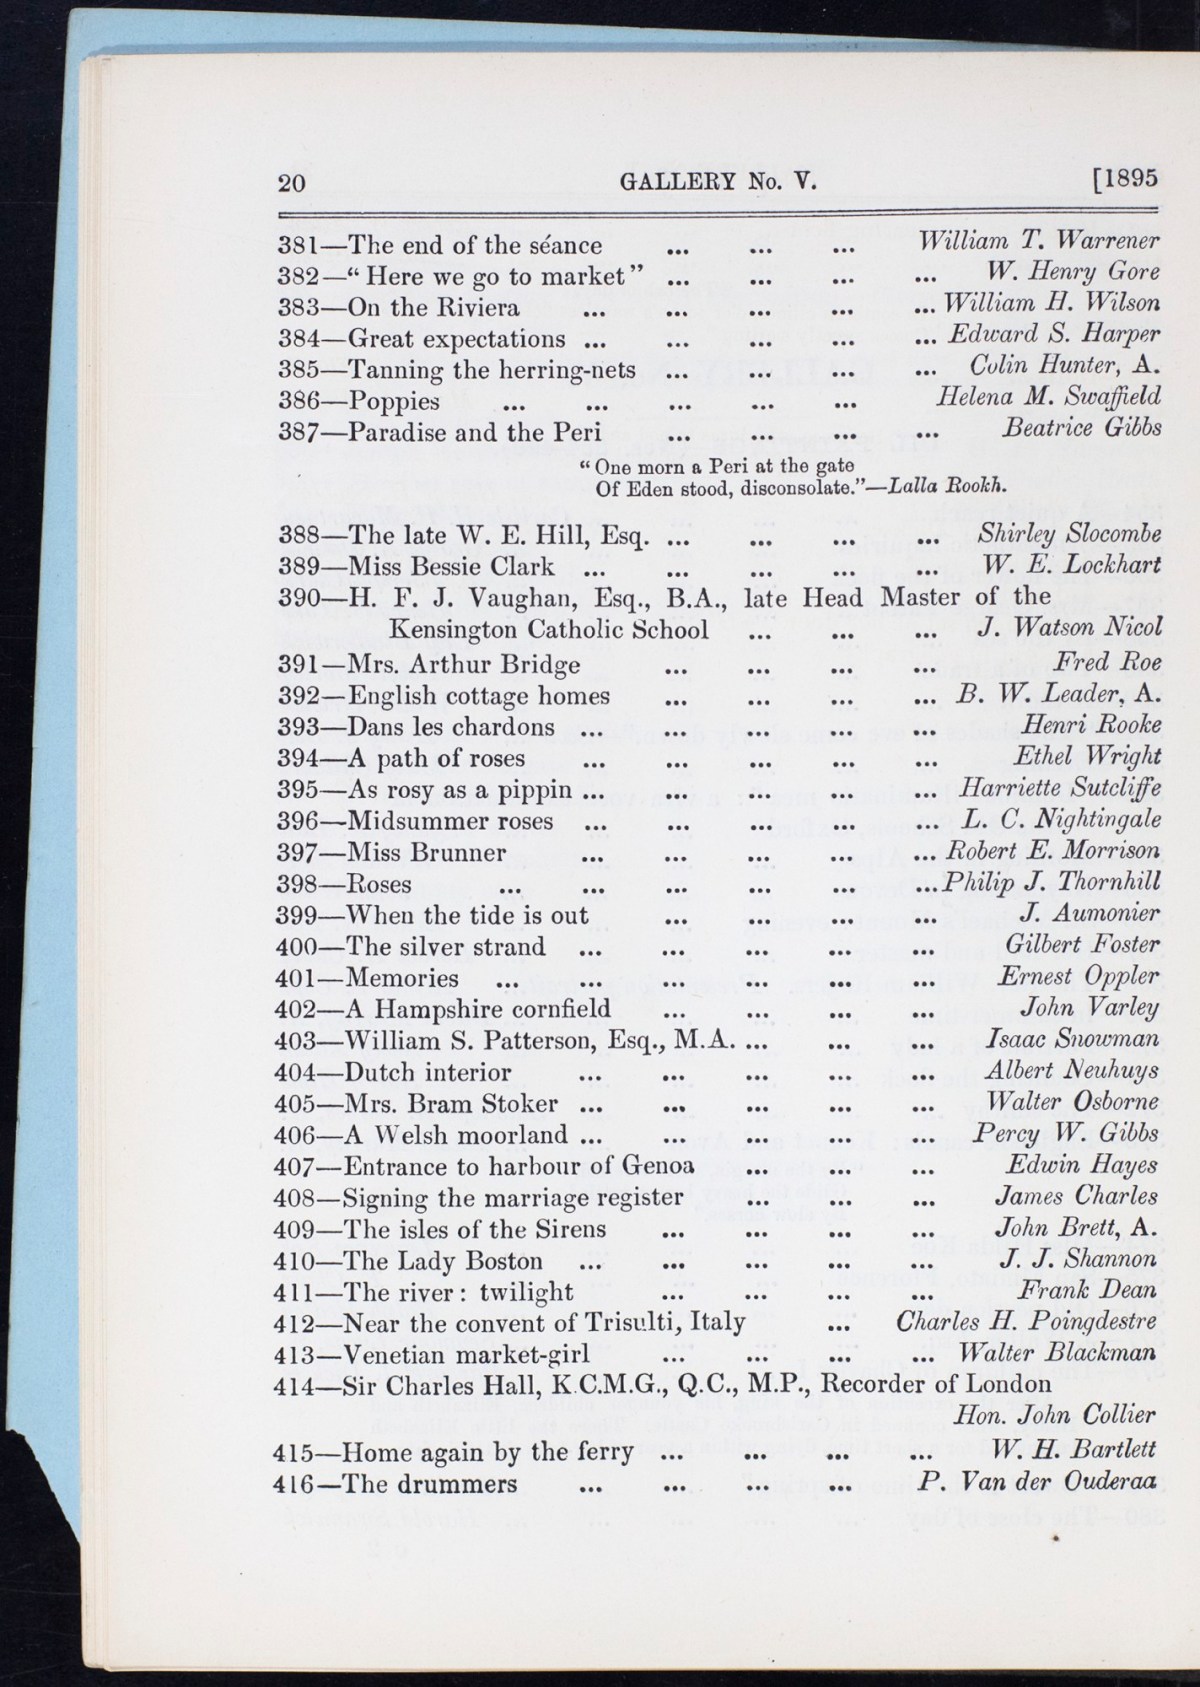 20 GALLERY No. V. [1895
381—The end of the séance ... ... ... William T. Warrener
382—“Here we go to market” ... ... ... ... W. Henry Gore
383—On the Riviera ... ... ... ... ... William H. Wilson
384—Great expectations ... ... ... ... ... Edward S. Harper
385—Tanning the herring-nets ... ... ... ... Colin Hunter, A.
386—Poppies ... ... ... ... ... Helena M. Swaffield
387—Paradise and the Peri ... ... ... ... Beatrice Gibbs
“One morn a Peri at the gate
Of Eden stood, disconsolate.”—Lalla Rookh.
388—The late W. E. Hill, Esq. ... ... ... ... Shirley Slocombe
389—Miss Bessie Clark ... ... ... ... ... W. E. Lockhart
390—H. F. J. Vaughan, Esq., B.A., late Head Master of the
Kensington Catholic School ... ... ... J. Watson Nicol
391—Mrs. Arthur Bridge ... ... ... ... Fred Roe
392—English cottage homes ... ... ... ... B. W. Leader, A.
393—Dans les chardons ... ... ... ... ... Henri Rooke
394—A path of roses ... ... ... ... ... Ethel Wright
395—As rosy as a pippin ... ... ... ... ... Harriette Sutcliffe
396—Midsummer roses ... ... ... ... ... L. C. Nightingale
397—Miss Brunner ... ... ... ... ... Robert E. Morrison
398—Roses ... ... ... ... ... ... Philip J. Thornhill
399—When the tide is out ... ... ... ... J. Aumonier
400—The silver strand ... ... ... ... ... Gilbert Foster
401—Memories ... ... ... ... ... ... Ernest Oppler
402—A Hampshire cornfield ... ... ... ... John Varley
403—William S. Patterson, Esq., M.A. ... ... ... Isaac Snowman
404—Dutch interior ... ... ... ... ... Albert Neuhuys
405—Mrs. Bram Stoker ... ... ... ... ... Walter Osborne
406—A Welsh moorland ... ... ... ... ... Percy W. Gibbs
407—Entrance to harbour of Genoa ... ... ... Edwin Hayes
408—Signing the marriage register ... ... ... James Charles
409—The isles of the Sirens ... ... ... ... John Brett, A.
410—The Lady Boston ... ... ... ... ... J. J. Shannon
411—The river: twilight ... ... ... ... Frank Dean
412—Near the convent of Trisulti, Italy ... Charles H. Poingdestre
413—Venetian market-girl ... ... ... ... Walter Blackman
414—Sir Charles Hall, K.C.M.G., Q.C., M.P., Recorder of London
Hon. John Collier
415—Home again by the ferry ... ... ... ... W. H. Bartlett
416—The drummers ... ... ... ... P. Van der Ouderaa